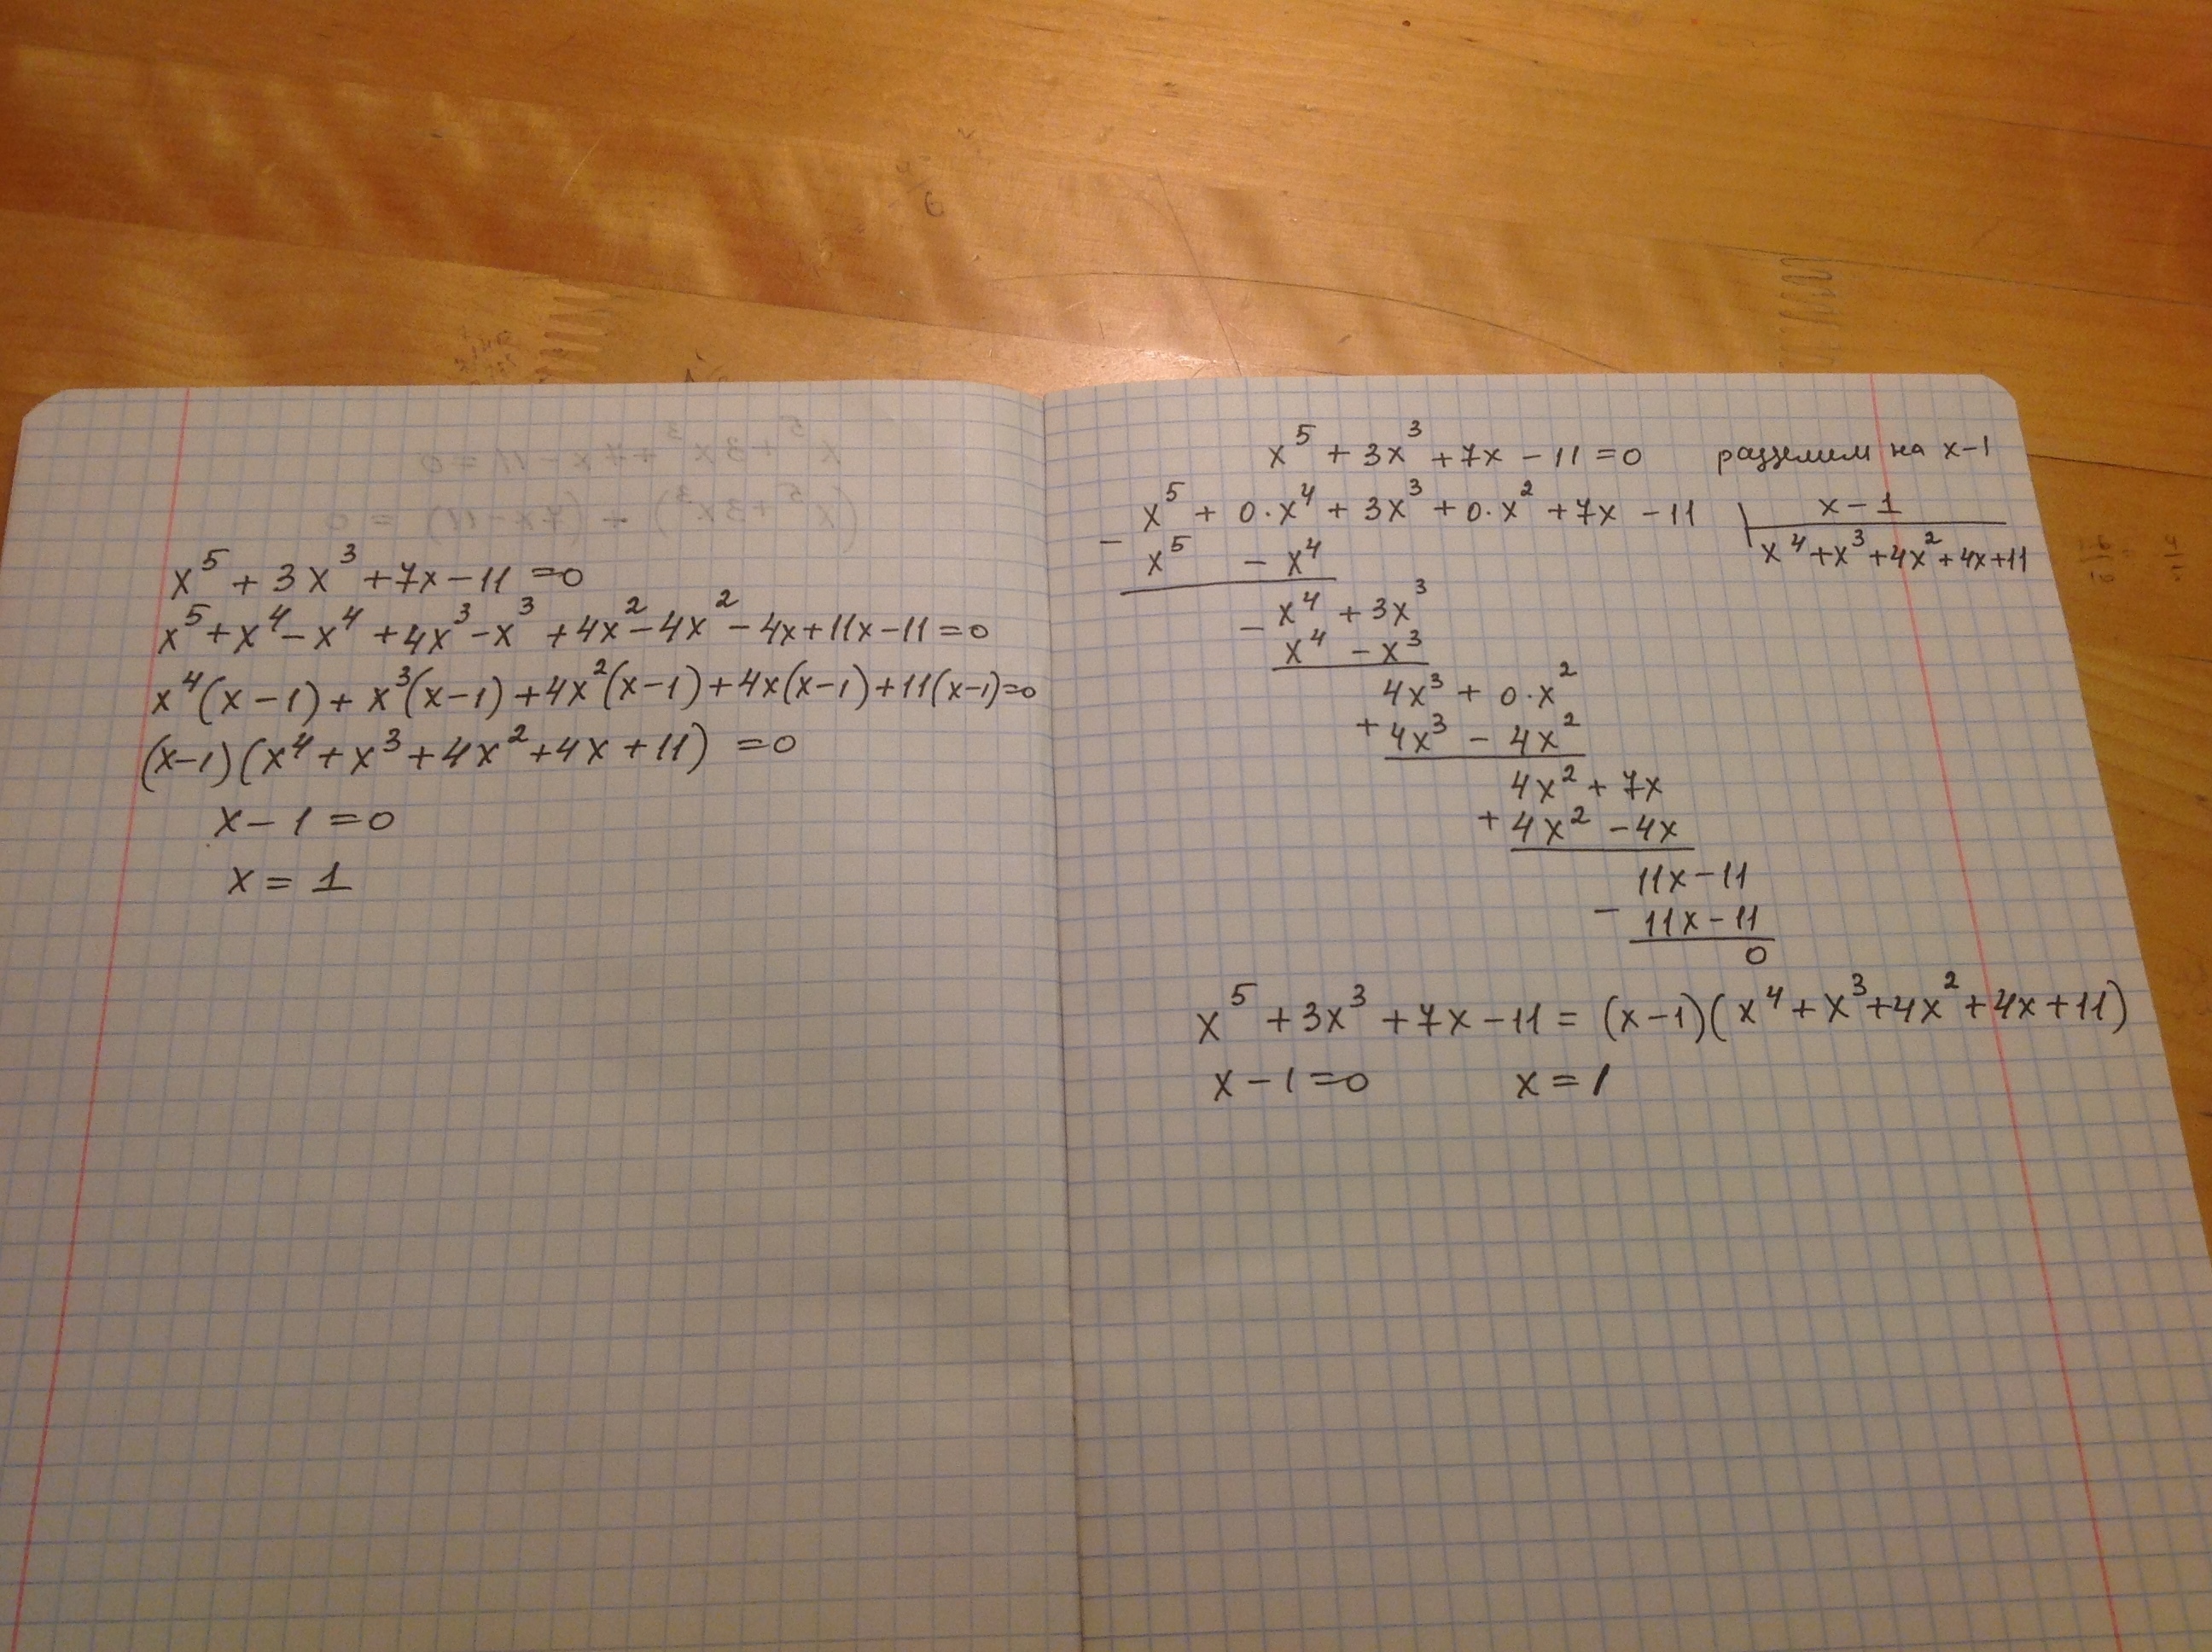 x⁵ + 3x³ + 7x - 11 = 0
x⁵ + x⁴ - x⁴ + 4x³ - x³ + 4x² - 4x² - 4x + 11x - 11 = 0
x⁴(x - 1) + x³(x - 1) + 4x²(x - 1) + 4x(x - 1) + 11(x - 1) = 0
(x - 1)(x⁴ + x³ + 4x² + 4x + 11) = 0
x - 1 = 0
x = 1
x⁵ + 3x³ + 7x - 11 = 0 разделим на x - 1
x⁵ + 0·x⁴ + 3x³ + 0·x² + 7x - 11 | x - 1
- x⁵ - x⁴ x⁴ + x³ + 4x² + 4x + 11
x⁴ + 3x³
- x⁴ - x³
4x³ + 0·x²
+ 4x³ - 4x²
4x² + 7x
+ 4x² - 4x
11x - 11
- 11x - 11
0
x⁵ + 3x³ + 7x - 11 = (x - 1)(x⁴ + x³ + 4x² + 4x + 11)
x - 1 = 0 x = 1